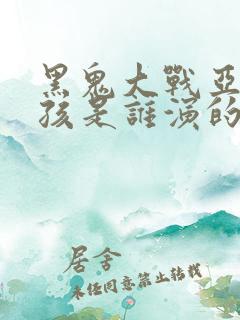 黑鬼大戰亞
孩是誰演的
居舍
未經同意禁止转载